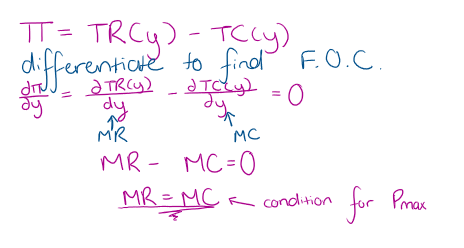 π = TR(y) - TC(y)
differentiate to find F.O.C.
∂π/∂y = ∂TR(y)/∂y - ∂TC(y)/∂y = 0
MR MC
MR - MC = 0
MR = MC ← condition for Pmax